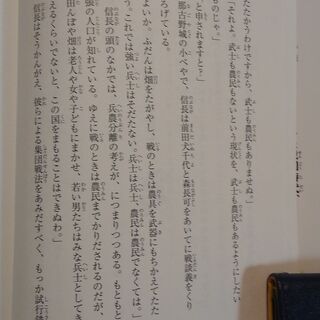 たたかうわけですから、武士も農民もありませぬ。」
「それよ。武士も農民もないという現状を、武士も農民もあるようにしたい
ものじゃ。」
と申されますと？」
那古野城の小べやで、信長は前田犬千代と森長可をあいてに戦談義をくり
ろげている。
よいか。ふだんは畑をたがやし、戦のときは農具を武器にもちかえてたた
う。これでは強い兵士はそだたない。兵士は兵士、農民は農民でなくては。」
信長の頭のなかでは、兵農分離の考えが、につまりつつある。もともと
強の人口が知れている。ゆえに戦のときは農民までかりだされるのだが、
田んぼや畑は老人や女や子どもにまかせ、若い男たちはみな兵士としてき
えるくらいでないと、この国をまもることはできぬわ。」
信長はそうかんがえ、彼らによる集団戦法をあみだすべく、もっか試行錯